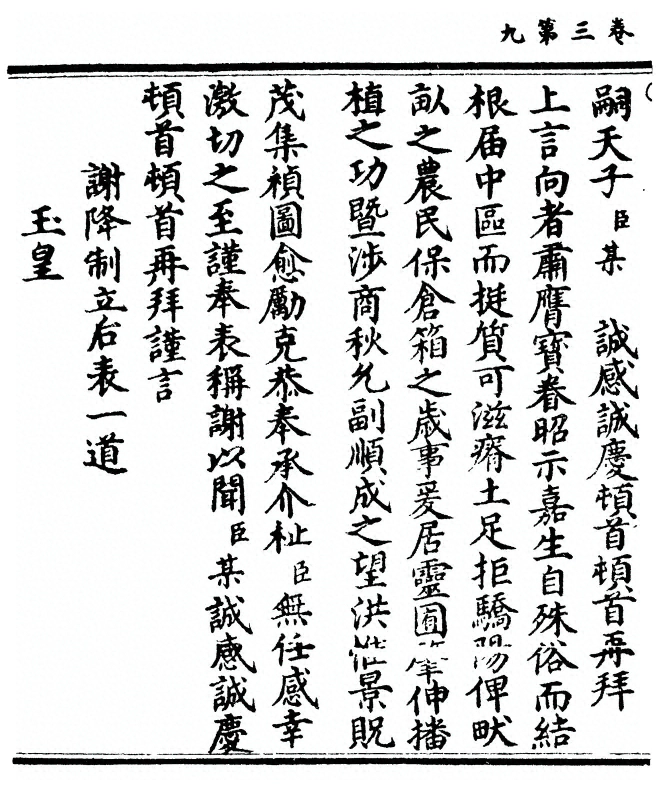 卷三第九
嗣天子臣某 誠感誠慶頓首頓首再拜
上言向者肅膺寶眷昭示嘉生自殊俗而結
根届中區而挺質可滋瘠土足拒驕陽俾畎
畝之農民保倉箱之歲事爰居靈囿肇伸播
植之功暨涉商秋允副順成之望洪惟景貺
茂集禎圖愈勵克恭奉承介祉臣無任感幸
激切之至謹奉表稱謝以聞臣某誠感誠慶
頓首頓首再拜謹言
謝降制立后表一道
玉皇